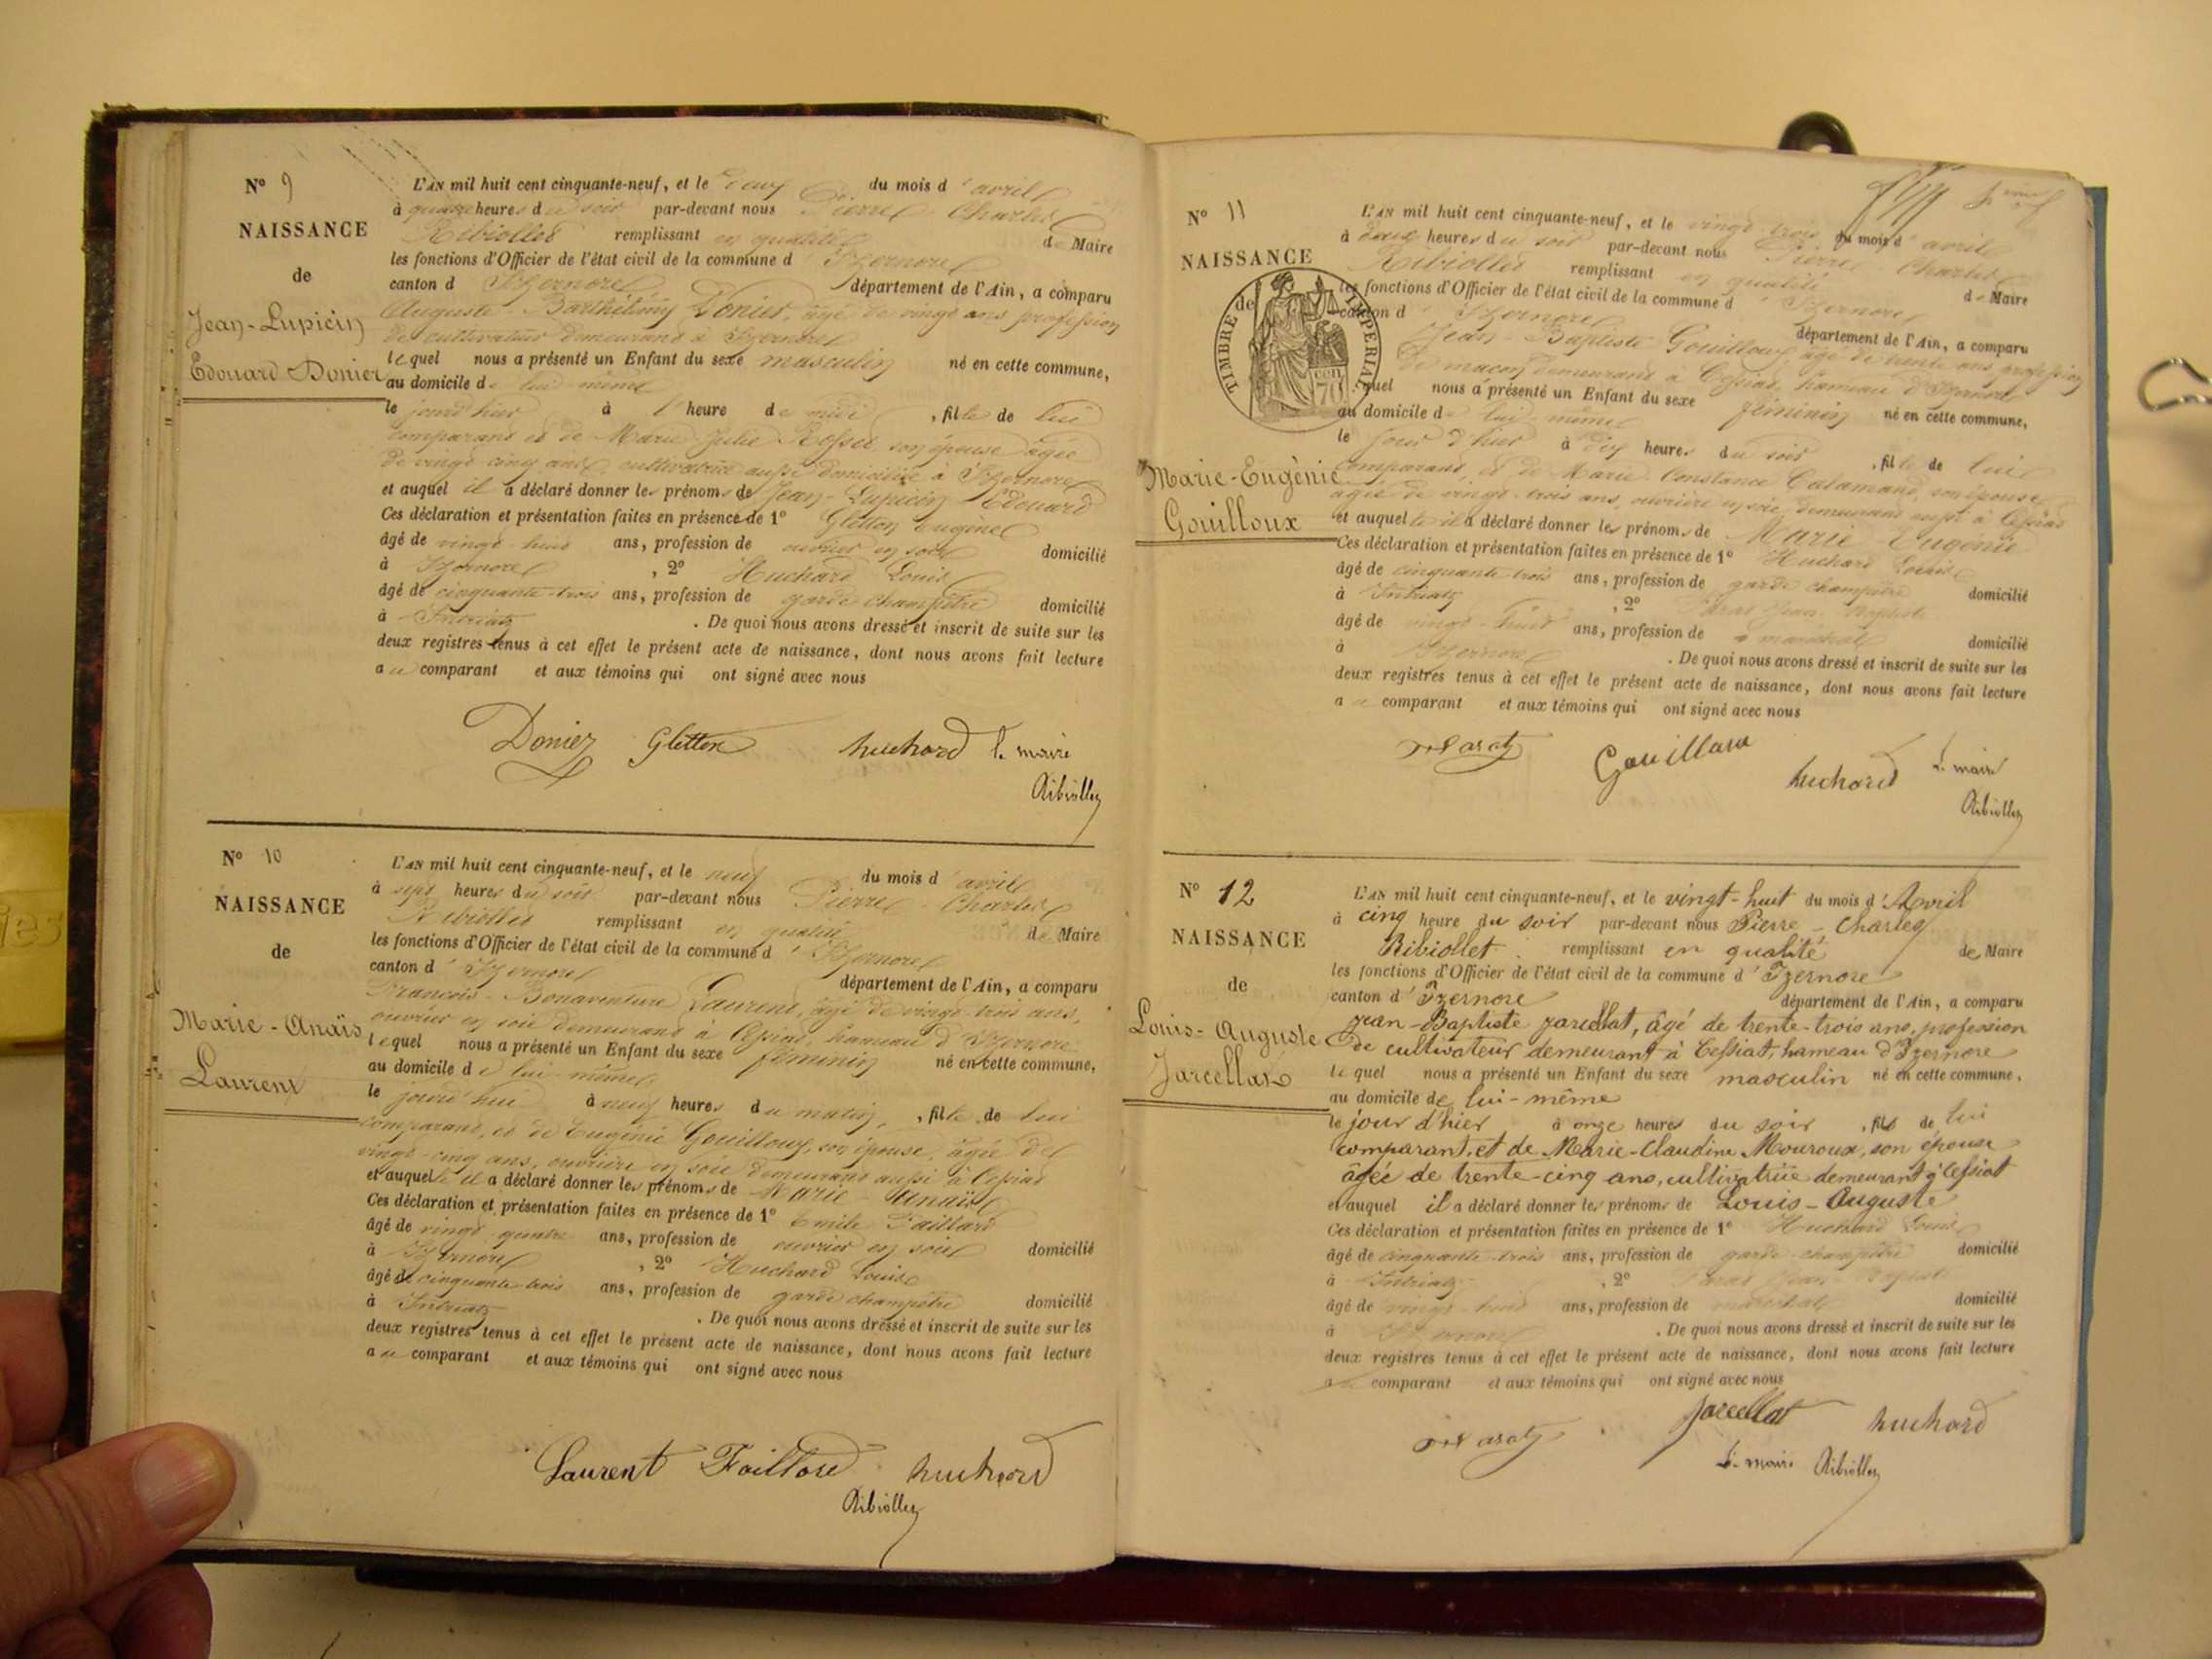 N° 9
NAISSANCE
de
Jean-Lupicin
Edouard Donier
L'AN mil huit cent cinquante-neuf, et le deux du mois d'avril
à quatre heures du soir par-devant nous Pierre Charles
Ribiollet remplissant en qualité de Maire
les fonctions d'Officier de l'état civil de la commune d'Izernore
canton d'Izernore département de l'Ain, a comparu
Auguste-Barthélemy Donier, âgé de vingt ans profession
de cultivateur demeurant à Izernore
lequel nous a présenté un Enfant du sexe masculin né en cette commune,
au domicile de lui même
le jourd'hier à heure de midi, fils de lui
comparant et de Marie Julie Rosset, son épouse agée
de vingt cinq ans, cultivatrice aussi domiciliée à Izernore
et auquel il a déclaré donner les prénoms de Jean-Lupicin Edouard
Ces déclaration et présentation faites en présence de 1° Gletton Eugène
âgé de vingt-huit ans, profession de ouvrier en soie domicilié
à Izernore, 2° Huchard Louis
âgé de cinquante-trois ans, profession de garde champêtre domicilié
à Intriatz. De quoi nous avons dressé et inscrit de suite sur les
deux registres tenus à cet effet le présent acte de naissance, dont nous avons fait lecture
au comparant et aux témoins qui ont signé avec nous
Donier Gletton huchard le maire
Ribiollet
N° 10
NAISSANCE
de
Marie-Anaïs
Laurent
L'AN mil huit cent cinquante-neuf, et le neuf du mois d'avril
à sept heures du soir par-devant nous Pierre-Charles
Ribiollet remplissant en qualité de Maire
les fonctions d'Officier de l'état civil de la commune d'Izernore
canton d'Izernore département de l'Ain, a comparu
François-Bonaventure Laurent, âgé de vingt-trois ans,
ouvrier en soie demeurant à Cessiat, hameau d'Izernore
lequel nous a présenté un Enfant du sexe féminin né en cette commune,
au domicile de lui-même
le jourd'hui à neuf heures du matin, fille de lui
comparant, et de Eugénie Gouilloux, son épouse, âgée de
vingt-cinq ans, ouvrière en soie demeurant aussi à Cessiat
et auquel il a déclaré donner les prénoms de Marie-Anaïs
Ces déclaration et présentation faites en présence de 1° Emile Faillard
âgé de vingt quatre ans, profession de ouvrier en soie domicilié
à Izernore, 2° Huchard Louis
âgé de cinquante trois ans, profession de garde champêtre domicilié
à Intriatz. De quoi nous avons dressé et inscrit de suite sur les
deux registres tenus à cet effet le présent acte de naissance, dont nous avons fait lecture
au comparant et aux témoins qui ont signé avec nous
Laurent Faillard huchard
Ribiollet
N° 11
NAISSANCE
de
TIMBRE IMPERIAL
cen 70
Marie-Eugènie
Gouilloux
L'AN mil huit cent cinquante-neuf, et le vingt-trois du mois d'avril
à deux heures du soir par-devant nous Pierre Charles
Ribiollet remplissant en qualité de Maire
les fonctions d'Officier de l'état civil de la commune d'Izernore
canton d'Izernore département de l'Ain, a comparu
Jean-Baptiste Gouilloux, âgé de trente ans, profession
de maçon demeurant à Cessiat, hameau d'Izernore
lequel nous a présenté un Enfant du sexe féminin né en cette commune,
au domicile de lui même
le jour d'hier à dix heures du soir, fille de lui
comparant, et de Marie Constance Catamand, son épouse
agée de vingt-trois ans, ouvrière en soie, demeurant aussi à Cessiat
et auquelle il a déclaré donner les prénoms de Marie-Eugénie
Ces déclaration et présentation faites en présence de 1° Huchard Louis
âgé de cinquante-trois ans, profession de garde champêtre domicilié
à Intriatz, 2° Jean-Baptiste
âgé de vingt-huit ans, profession de maréchal domicilié
à Izernore. De quoi nous avons dressé et inscrit de suite sur les
deux registres tenus à cet effet le présent acte de naissance, dont nous avons fait lecture
au comparant et aux témoins qui ont signé avec nous
Gouilloux huchard le maire
Ribiollet
N° 12
NAISSANCE
de
Louis-Auguste
Jarcellat
L'AN mil huit cent cinquante-neuf, et le vingt-huit du mois d'Avril
à cinq heure du soir par-devant nous Pierre-Charles
Ribiollet remplissant en qualité de Maire
les fonctions d'Officier de l'état civil de la commune d'Izernore
canton d'Izernore département de l'Ain, a comparu
Jean-Baptiste Jarcellat, âgé de trente-trois ans, profession
de cultivateur demeurant à Cessiat, hameau d'Izernore
lequel nous a présenté un Enfant du sexe masculin né en cette commune,
au domicile de lui-même
le jour d'hier à onze heures du soir, fils de lui
comparant, et de Marie-Claudine Mouroux, son épouse
âgée de trente-cinq ans, cultivatrice demeurant à Cessiat
et auquel il a déclaré donner les prénoms de Louis-Auguste
Ces déclaration et présentation faites en présence de 1° Huchard Louis
âgé de cinquante-trois ans, profession de garde champêtre domicilié
à Intriatz, 2° Jean-Baptiste
âgé de vingt-huit ans, profession de maréchal domicilié
à Izernore. De quoi nous avons dressé et inscrit de suite sur les
deux registres tenus à cet effet le présent acte de naissance, dont nous avons fait lecture
au comparant et aux témoins qui ont signé avec nous
Jarcellat huchard
le maire Ribiollet